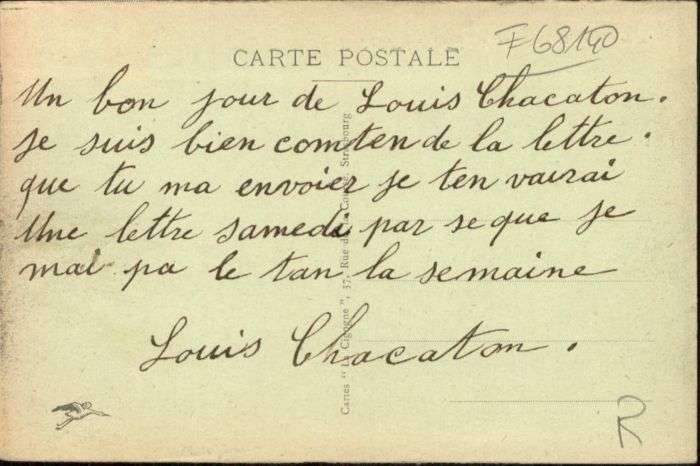 F68140
CARTE POSTALE
Un bon jour de Louis Chacaton.
Je suis bien comten de la lettre.
que tu ma envoier je ten vairai
Une lettre samedi par se que je
mai pa le tan la semaine
Louis Chacaton.
Cartes "La Cigogne", 37, Rue de la Course, Strasbourg
R